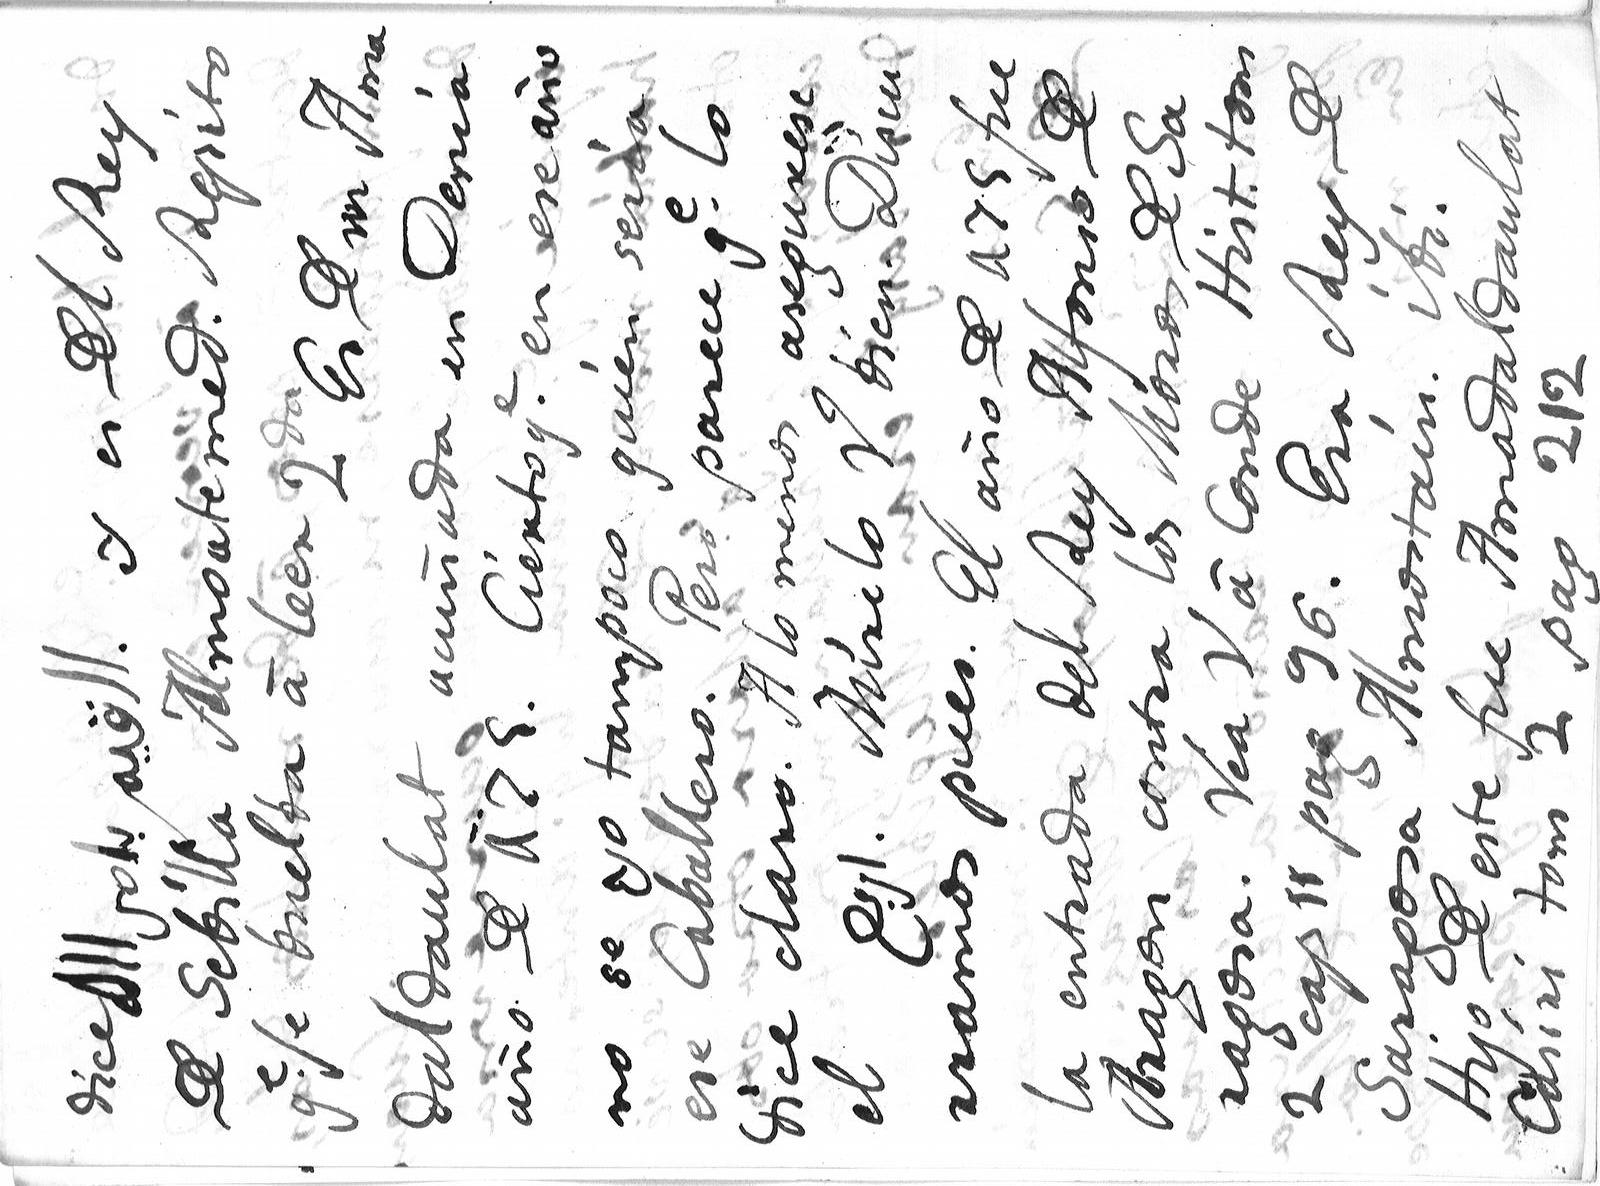 dice por aug. y es Del Rey
De Sebilla Almoatemed. Repito
qᵉ. se buelba à leer 2 da Es De un Ama
daldaulat acuñada en Denia
año De 475. Ciérto qᵉ. en ese año
no se yo tampoco quién sería
ese Caballero. Pero parece qᵉ. lo
dice claro. A lo menos asegurese
el Cogl. Mírelo V bien. Discu
rramos pues. El año De 475 fue
la entrada del Rey Alfonso De
Aragon contra los Moros De Sa
ragosa. Vea V à Conde Hist. tom
2 cap 11 pag 96. Era Rey De
Saragosa Almostaín. ibi.
Hijo De este fue Amadaldaulat
Casiri tom 2 pag 212